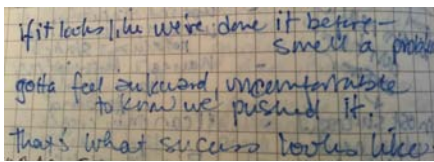 if it looks like we've done it before –
smell a problem
gotta feel awkward, uncomfortable
to know we pushed it.
That's what success looks like